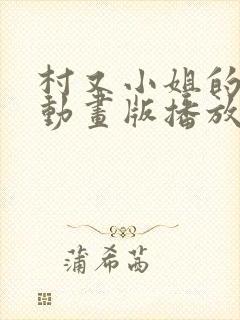 村又小姐的
動畫版播放
蒲希茜